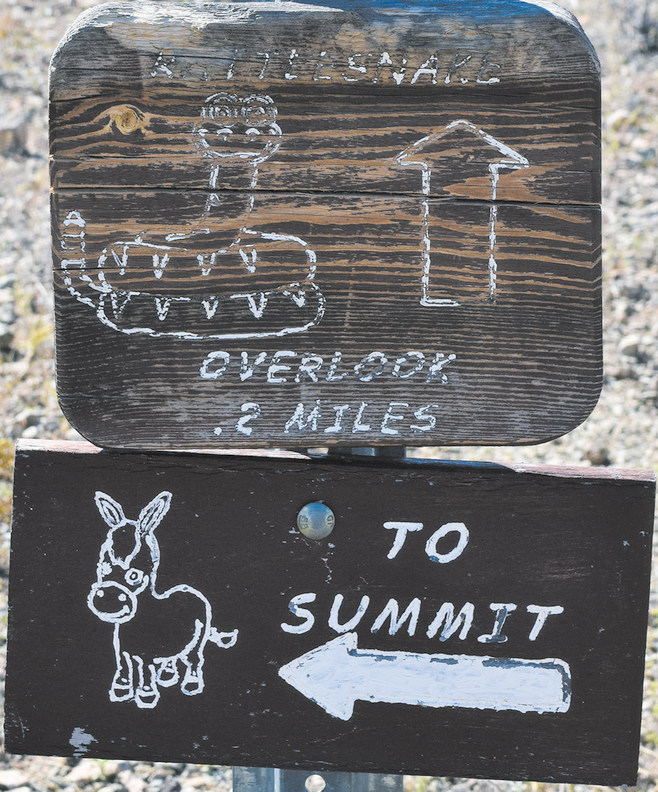 RATTLESNAKE
OVERLOOK
.2 MILES
TO
SUMMIT